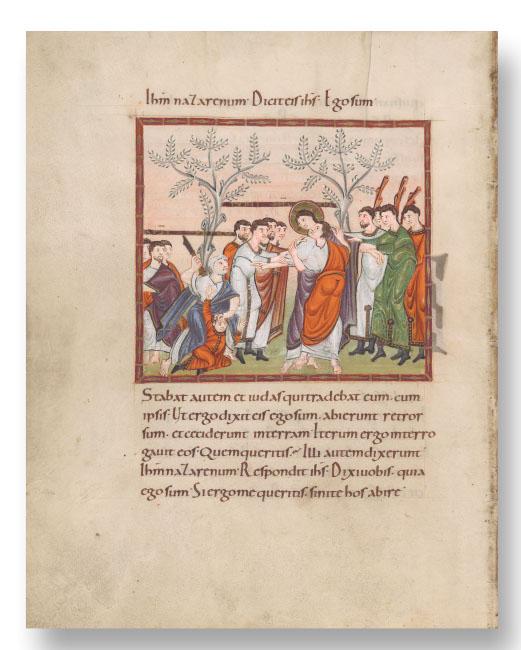 Ihm nazarenum· Dicit eis ihs· Ego sum
Stabat autem et iudas qui tradebat eum· cum
ipsis· Ut ergo dixit eis ego sum· abierunt retror
sum· et ceciderunt in terram· Iterum ergo interro
gavit eos· Quem queritis· Illi autem dixerunt
Ihm nazarenum· Respondit ihs· Dixi vobis· quia
ego sum· Si ergo me queritis· sinite hos abire